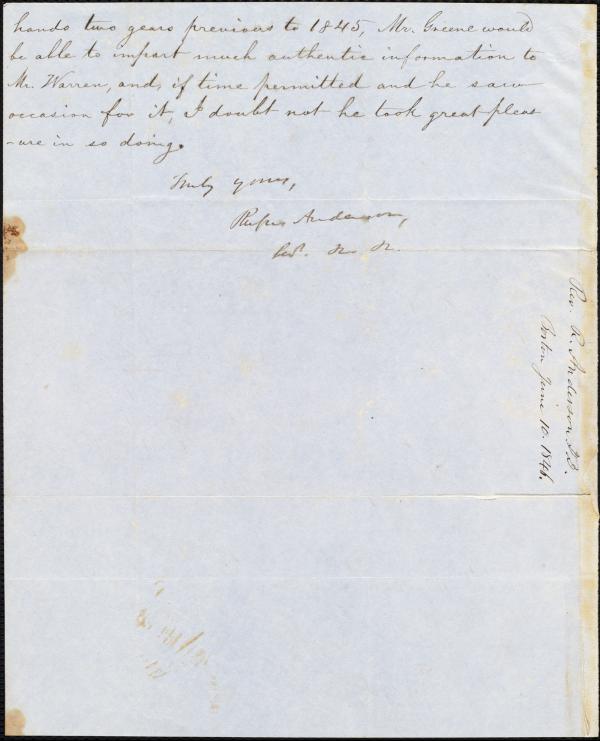 hands two years previous to 1845, Mr. Greene would
be able to impart much authentic information to
Mr. Warren, and, if time permitted and he saw
occasion for it, I doubt not he took great pleas
-ure in so doing.
Truly yours,
Rufus Anderson,
Rev. R. Anderson D.D.
Boston June 10. 1846.